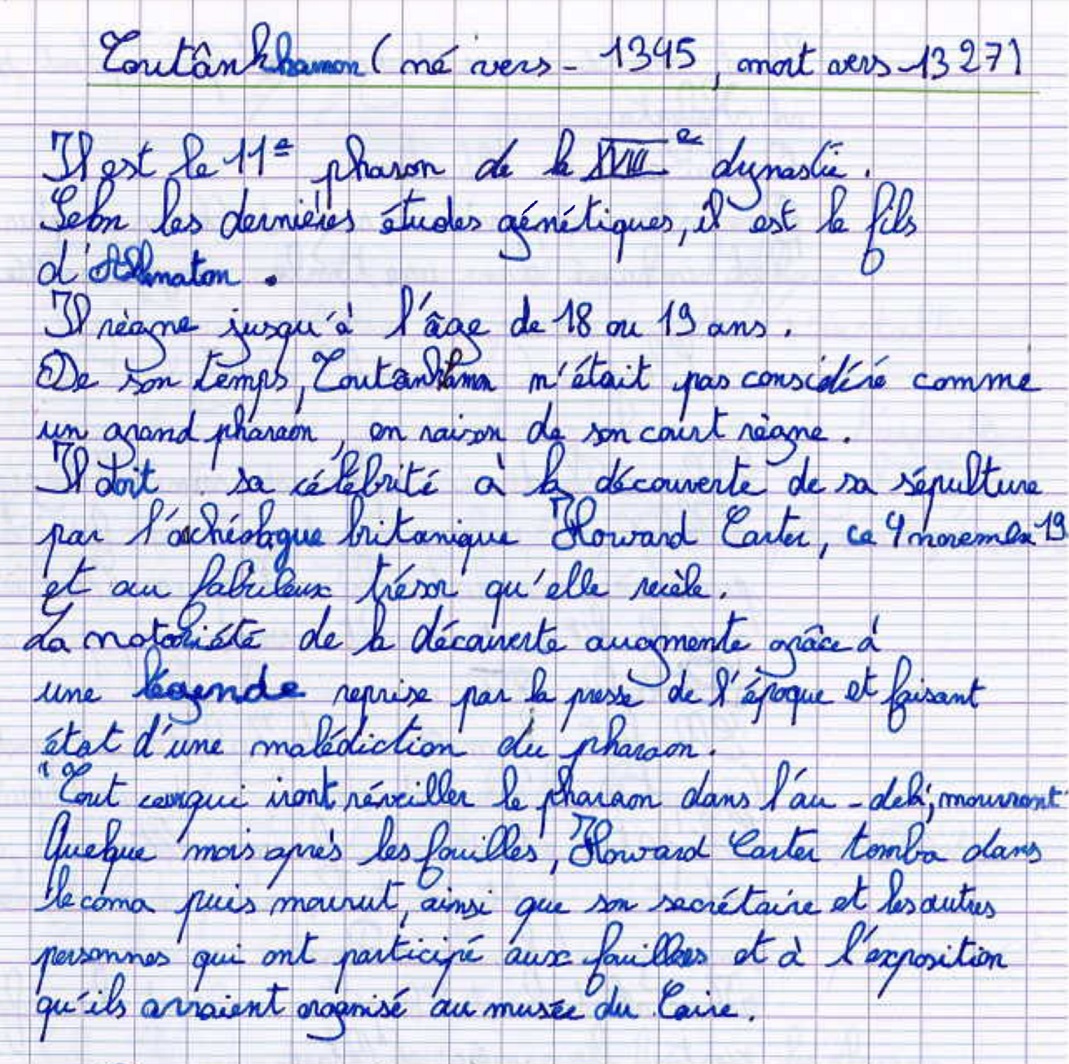 Toutânkhamon (né vers - 1345, mort vers -1327)
Il est le 11e pharaon de la XVIIIe dynastie.
Selon les dernières études génétiques, il est le fils
d'Akhnaton.
Il règne jusqu'à l'âge de 18 ou 19 ans.
De son temps, Toutankhamn n'était pas considéré comme
un grand pharaon, en raison de son court règne.
Il doit sa célébrité à la découverte de sa sépulture
par l'archéologue britanique Howard Carter, ce 4 novembre 19
et au fabuleux trésor qu'elle recèle.
La notoriété de la découverte augmente grâce à
une légende reprise par la presse de l'époque et faisant
état d'une malédiction du pharaon.
"Tout ceux qui iront réveiller le pharaon dans l'au-delà, mourront
Quelque mois après les fouilles, Howard Carter tomba dans
le coma puis mourut, ainsi que son secrétaire et les autres
personnes qui ont participé aux fouilles et à l'exposition
qu'ils avaient organisé au musée du Caire.